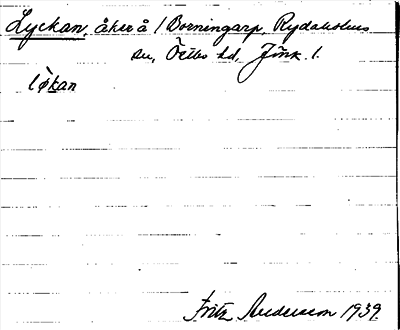 Lyckan, åker å / Borningarp, Rydaholms
sn, Östbo hd, Jönk. l.
lø̀kan
Fritz Andersson 1939